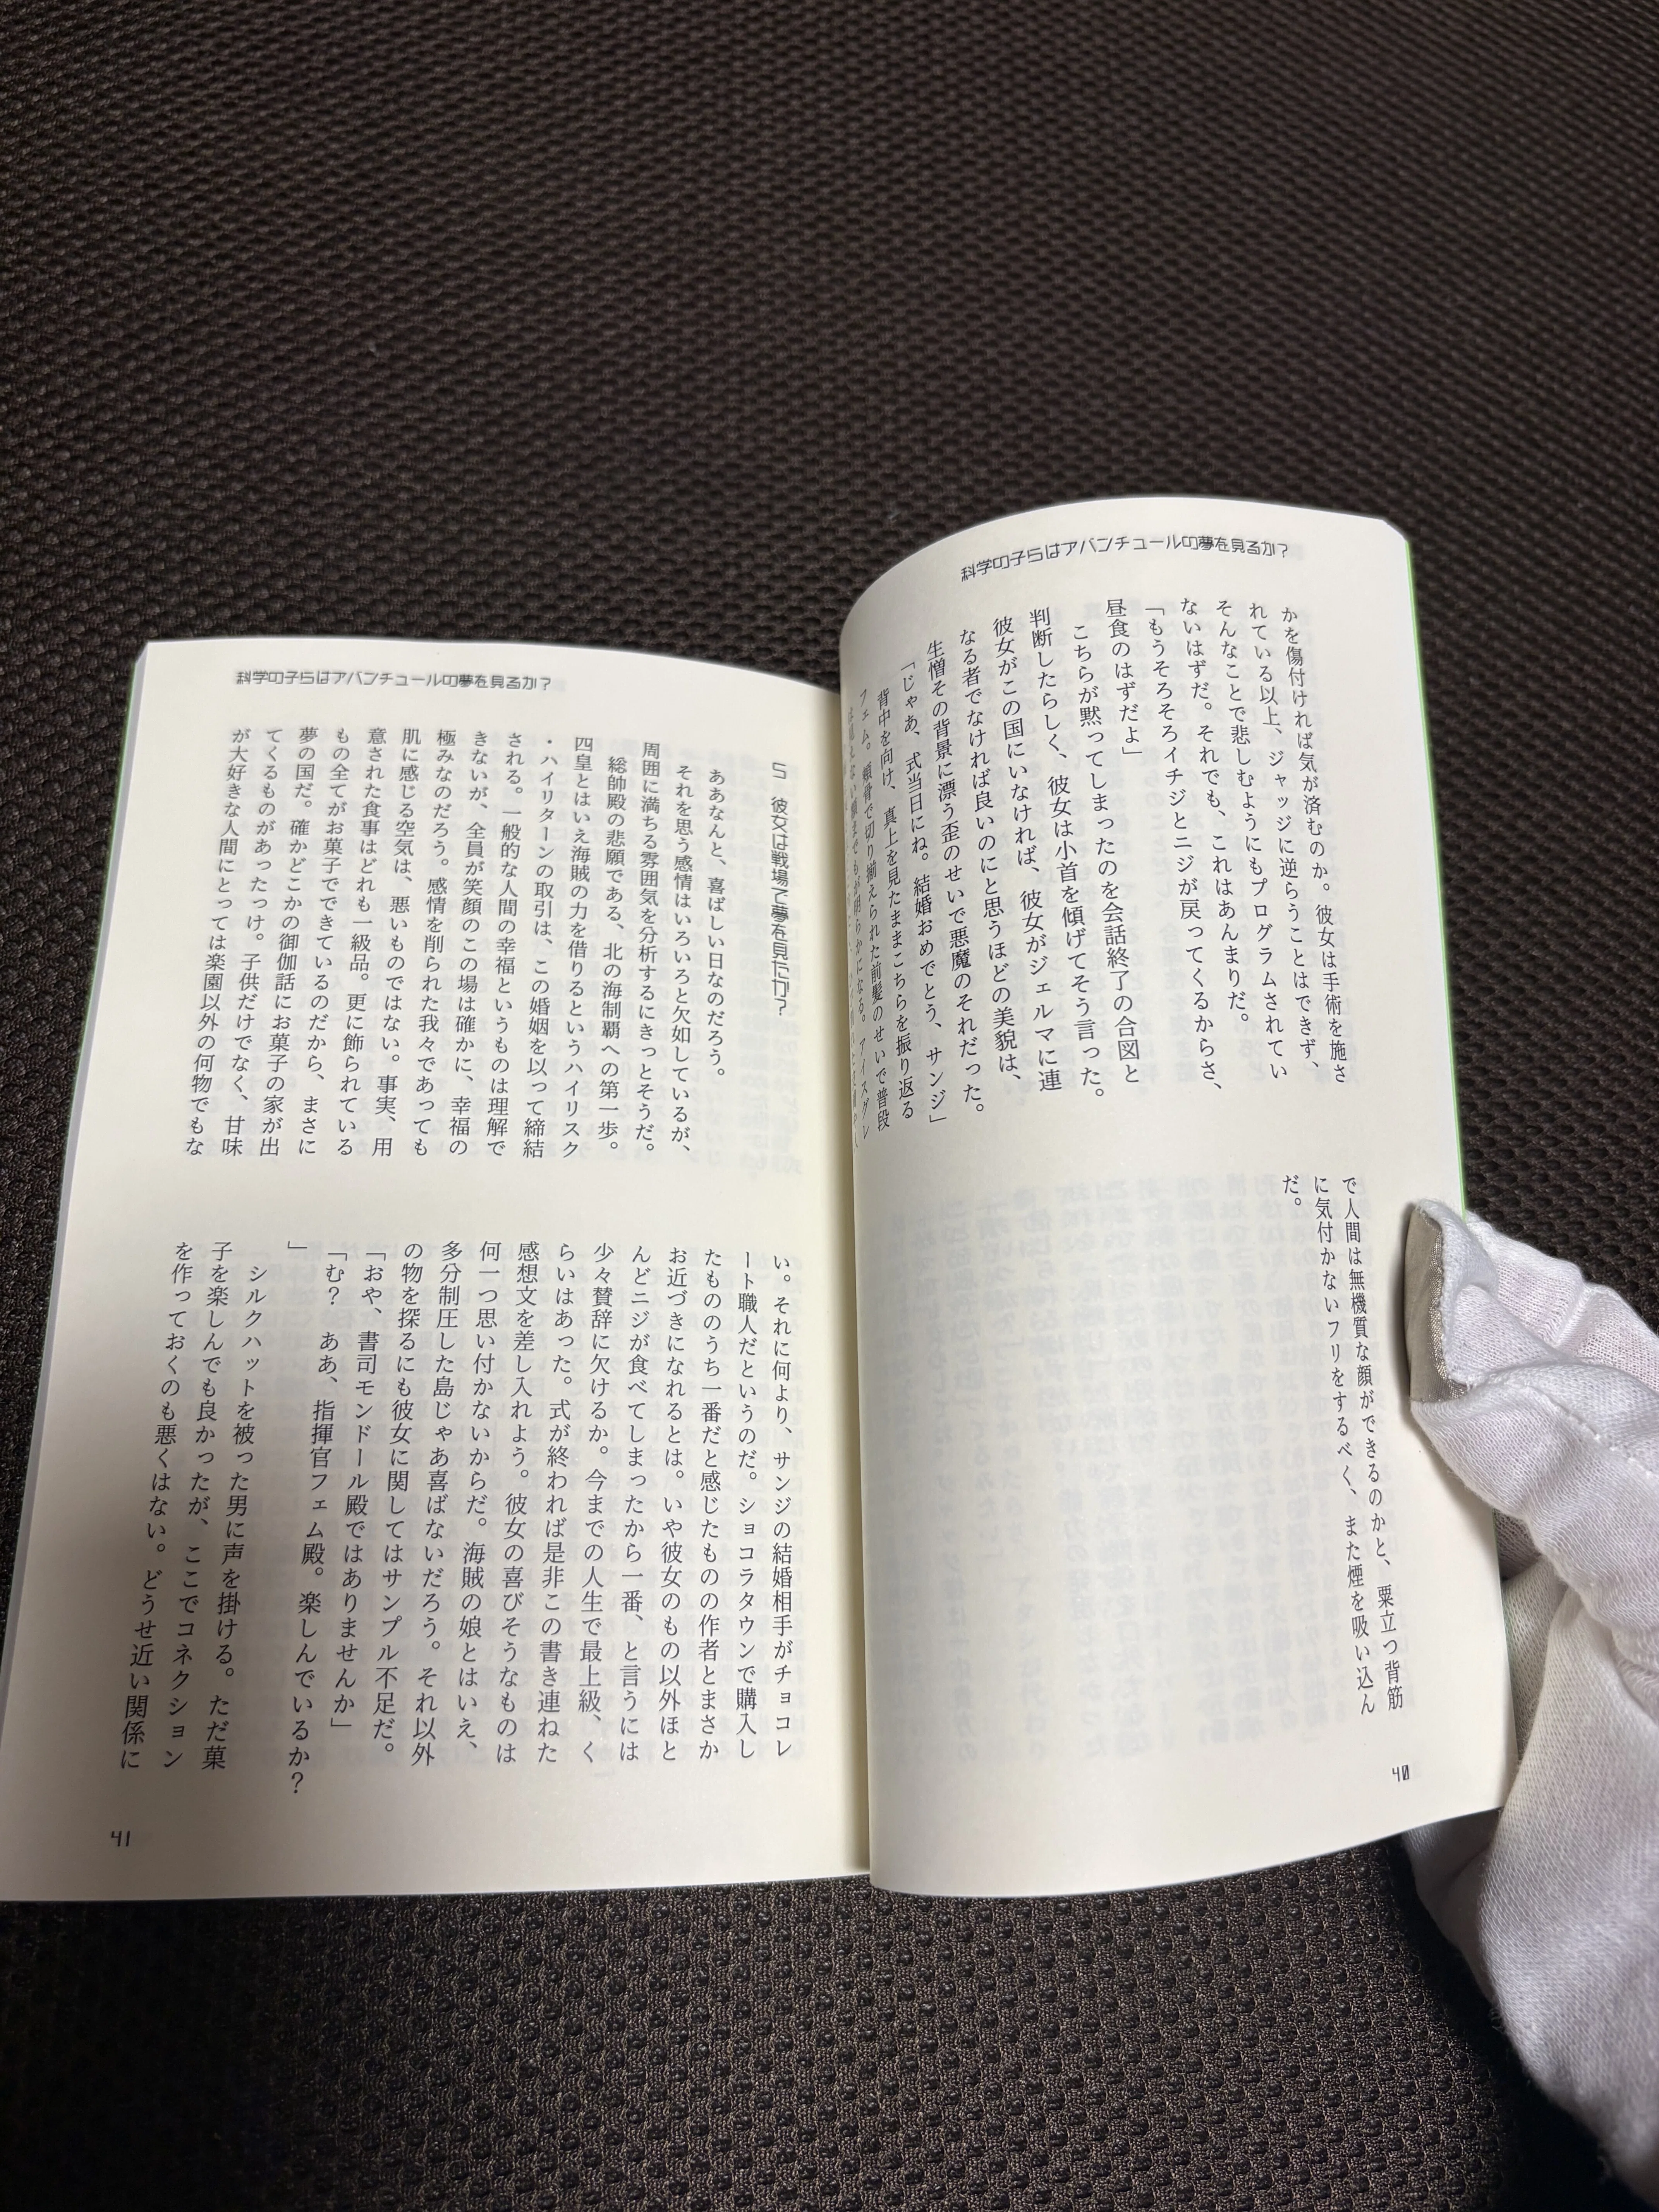 科学の子らはアバンチュールの夢を見るか?
かを傷付ければ気が済むのか。彼女は手術を施さ
れている以上、ジャッジに逆らうことはできず、
そんなことで悲しむようにもプログラムされてい
ないはずだ。それでも、これはあんまりだ。
「もうそろそろイチジとニジが戻ってくるからさ、
昼食のはずだよ」
こちらが黙ってしまったのを会話終了の合図と
判断したらしく、彼女は小首を傾げてそう言った。
彼女がこの国にいなければ、彼女がジェルマに連
なる者でなければ良いのにと思うほどの美貌は、
生憎その背景に漂う歪のせいで悪魔のそれだった。
「じゃあ、式当日にね。結婚おめでとう、サンジ」
背中を向け、真上を見たままこちらを振り返る
フェム。頬骨で切り揃えられた前髪のせいで普段
で人間は無機質な顔ができるのかと、粟立つ背筋
に気付かないフリをするべく、また煙を吸い込ん
だ。
40
科学の子らはアバンチュールの夢を見るか?
5 彼女は戦場で夢を見たか?
ああなんと、喜ばしい日なのだろう。
それを思う感情はいろいろと欠如しているが、
周囲に満ちる雰囲気を分析するにきっとそうだ。
総帥殿の悲願である、北の海制覇への第一歩。
四皇とはいえ海賊の力を借りるというハイリスク
・ハイリターンの取引は、この婚姻を以って締結
される。一般的な人間の幸福というものは理解で
きないが、全員が笑顔のこの場は確かに、幸福の
極みなのだろう。感情を削られた我々であっても
肌に感じる空気は、悪いものではない。事実、用
意された食事はどれも一級品。更に飾られている
もの全てがお菓子でできているのだから、まさに
夢の国だ。確かどこかの御伽話にお菓子の家が出
てくるものがあったっけ。子供だけでなく、甘味
が大好きな人間にとっては楽園以外の何物でもな
い。それに何より、サンジの結婚相手がチョコレ
ート職人だというのだ。ショコラタウンで購入し
たもののうち一番だと感じたものの作者とまさか
お近づきになれるとは。いや彼女のもの以外ほと
んどニジが食べてしまったから一番、と言うには
少々賛辞に欠けるか。今までの人生で最上級、く
らいはあった。式が終われば是非この書き連ねた
感想文を差し入れよう。彼女の喜びそうなものは
何一つ思い付かないからだ。海賊の娘とはいえ、
多分制圧した島じゃあ喜ばないだろう。それ以外
の物を探るにも彼女に関してはサンプル不足だ。
「おや、書司モンドール殿ではありませんか」
「む? ああ、指揮官フェム殿。楽しんでいるか?
」
シルクハットを被った男に声を掛ける。ただ菓
子を楽しんでも良かったが、ここでコネクション
を作っておくのも悪くはない。どうせ近い関係に
41